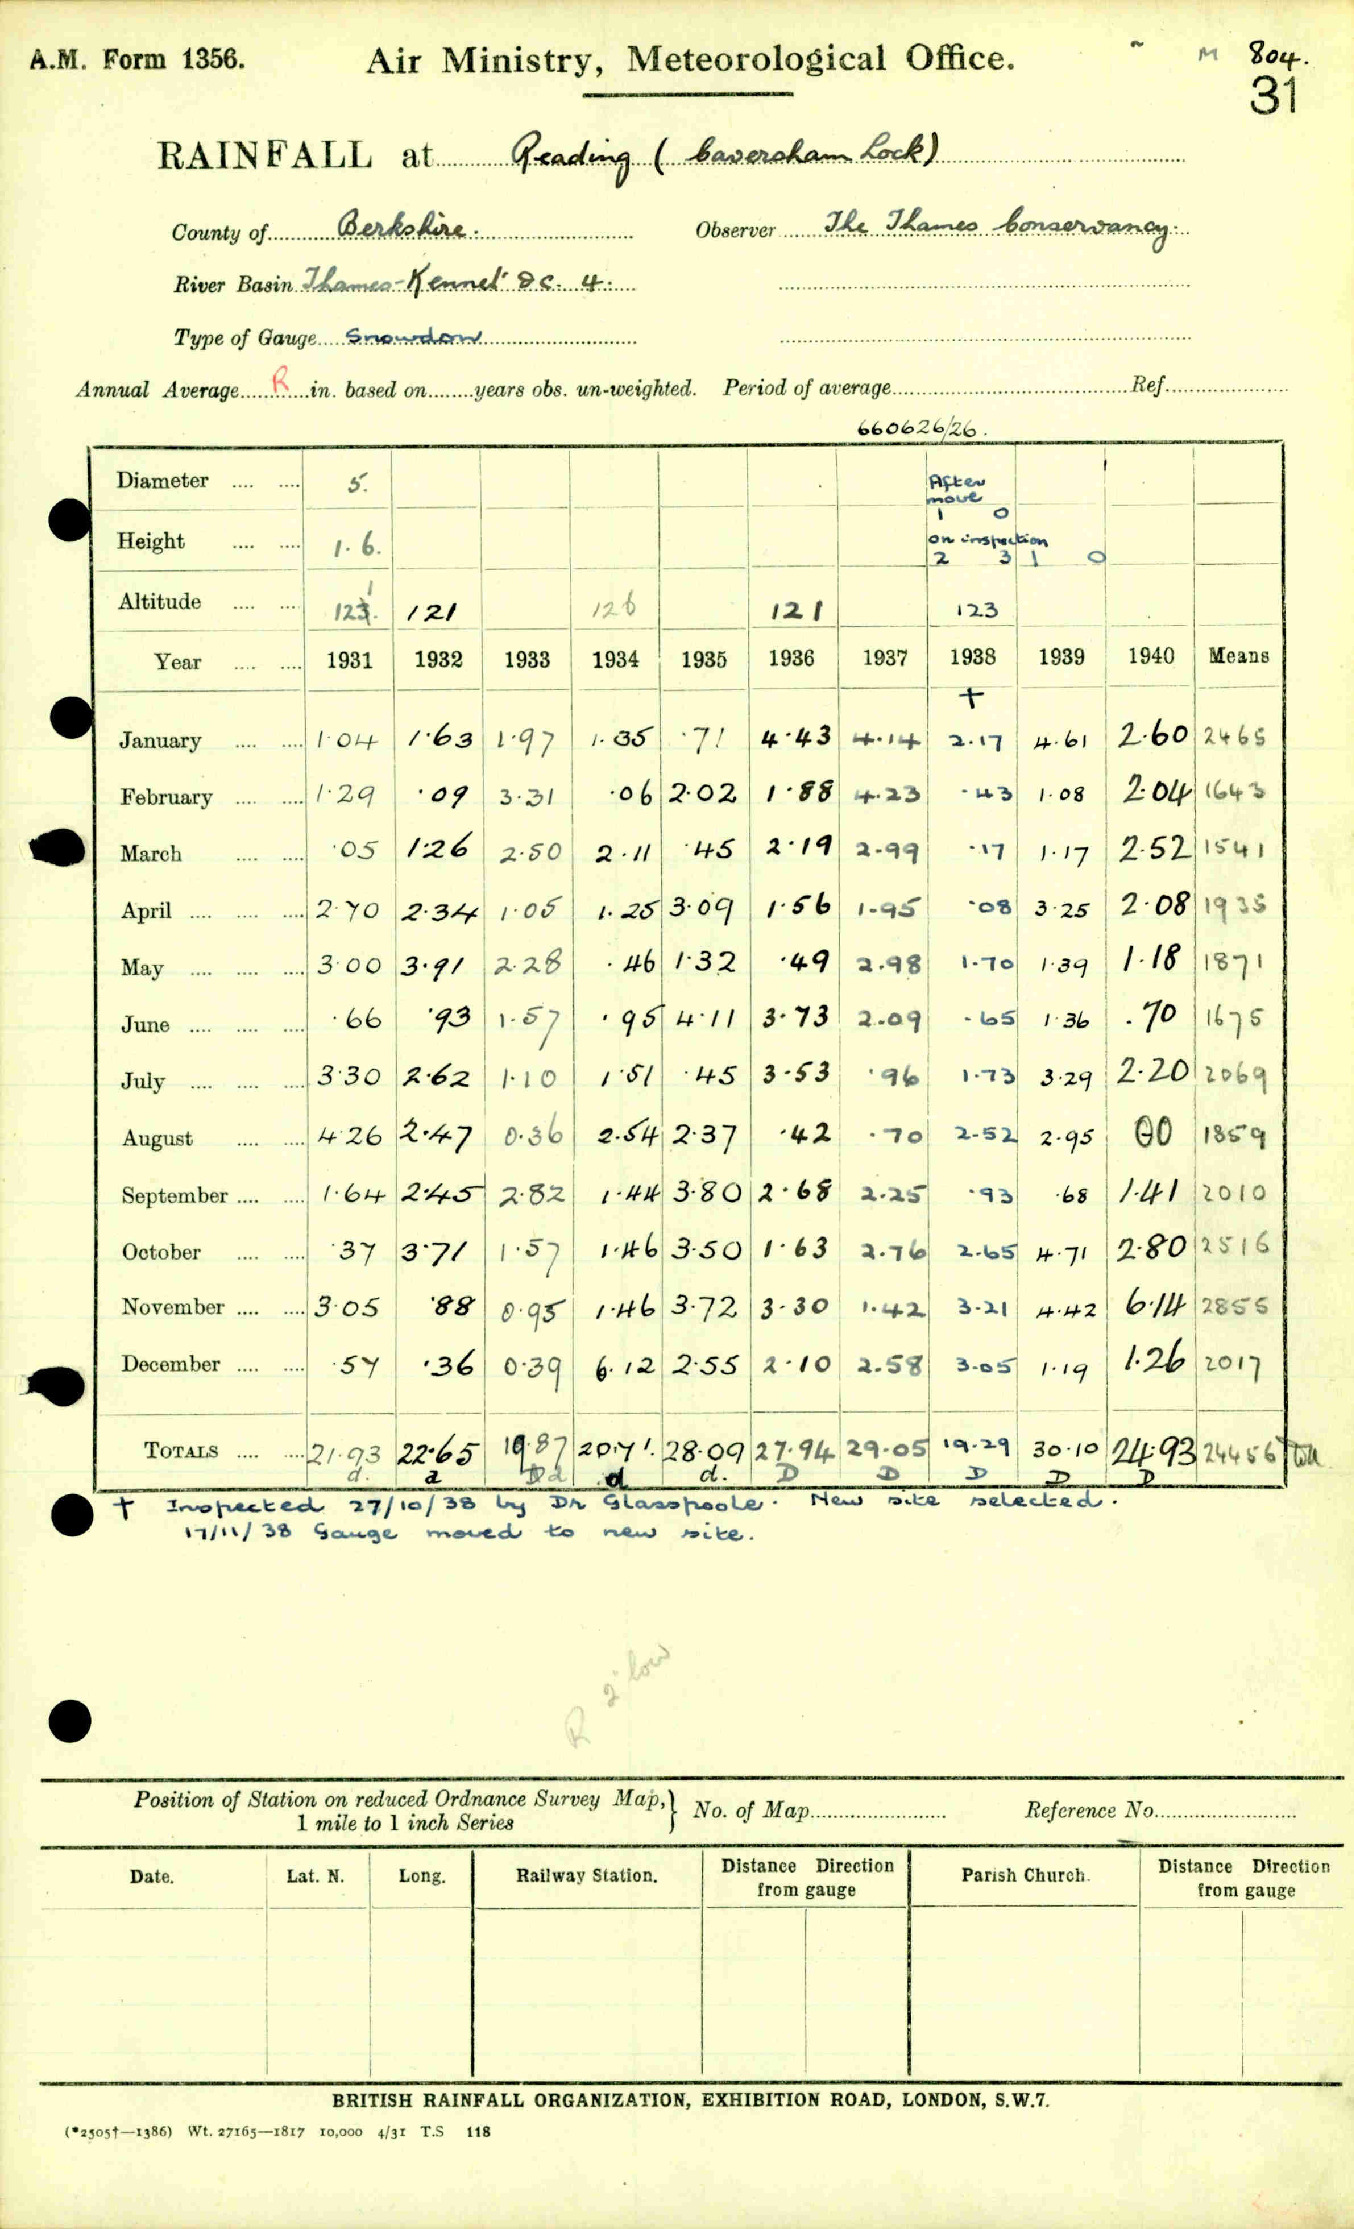 A.M. Form 1356. Air Ministry, Meteorological Office. M 804.
31
RAINFALL at Reading (Caversham Lock)
County of Berkshire. Observer The Thames Conservancy.
River Basin Thames-Kennet &c. 4.
Type of Gauge Snowdon
Annual Average R in. based on years obs. un-weighted. Period of average Ref.
660626/26.
Diameter 5. After move
1 0
Height 1. 6. on inspection
2 3 1 0
Altitude 121 126 121 123
Year 1931 1932 1933 1934 1935 1936 1937 1938 1939 1940 Means
+
January 1·04 1·63 1·97 1·35 ·71 4·43 4·14 2·17 4·61 2·60 2465
February 1·29 ·09 3·31 ·06 2·02 1·88 4·23 ·43 1·08 2·04 1643
March ·05 1·26 2·50 2·11 ·45 2·19 2·99 ·17 1·17 2·52 1541
April 2·70 2·34 1·05 1·25 3·09 1·56 1·95 ·08 3·25 2·08 1935
May 3·00 3·91 2·28 ·46 1·32 ·49 2·98 1·70 1·39 1·18 1871
June ·66 ·93 1·57 ·95 4·11 3·73 2·09 ·65 1·36 ·70 1675
July 3·30 2·62 1·10 1·51 ·45 3·53 ·96 1·73 3·29 2·20 2069
August 4·26 2·47 0·36 2·54 2·37 ·42 ·70 2·52 2·95 00 1859
September 1·64 2·45 2·82 1·44 3·80 2·68 2·25 ·93 ·68 1·41 2010
October ·37 3·71 1·57 1·46 3·50 1·63 2·76 2·65 4·71 2·80 2516
November 3·05 ·88 0·95 1·46 3·72 3·30 1·42 3·21 4·42 6·14 2855
December ·57 ·36 0·39 6·12 2·55 2·10 2·58 3·05 1·19 1·26 2017
TOTALS 21·93 22·65 19·87 20·71 28·09 27·94 29·05 19·29 30·10 24·93 24456
d. a D d d d. D D D D D
+ Inspected 27/10/38 by Dr Glasspoole. New site selected.
17/11/38 Gauge moved to new site.
R 2" low
Position of Station on reduced Ordnance Survey Map, 1 mile to 1 inch Series } No. of Map Reference No.
Date. Lat. N. Long. Railway Station. Distance Direction from gauge Parish Church. Distance Direction from gauge
BRITISH RAINFALL ORGANIZATION, EXHIBITION ROAD, LONDON, S.W.7.
(*2505†—1386) Wt. 27165—1817 10,000 4/31 T.S 118